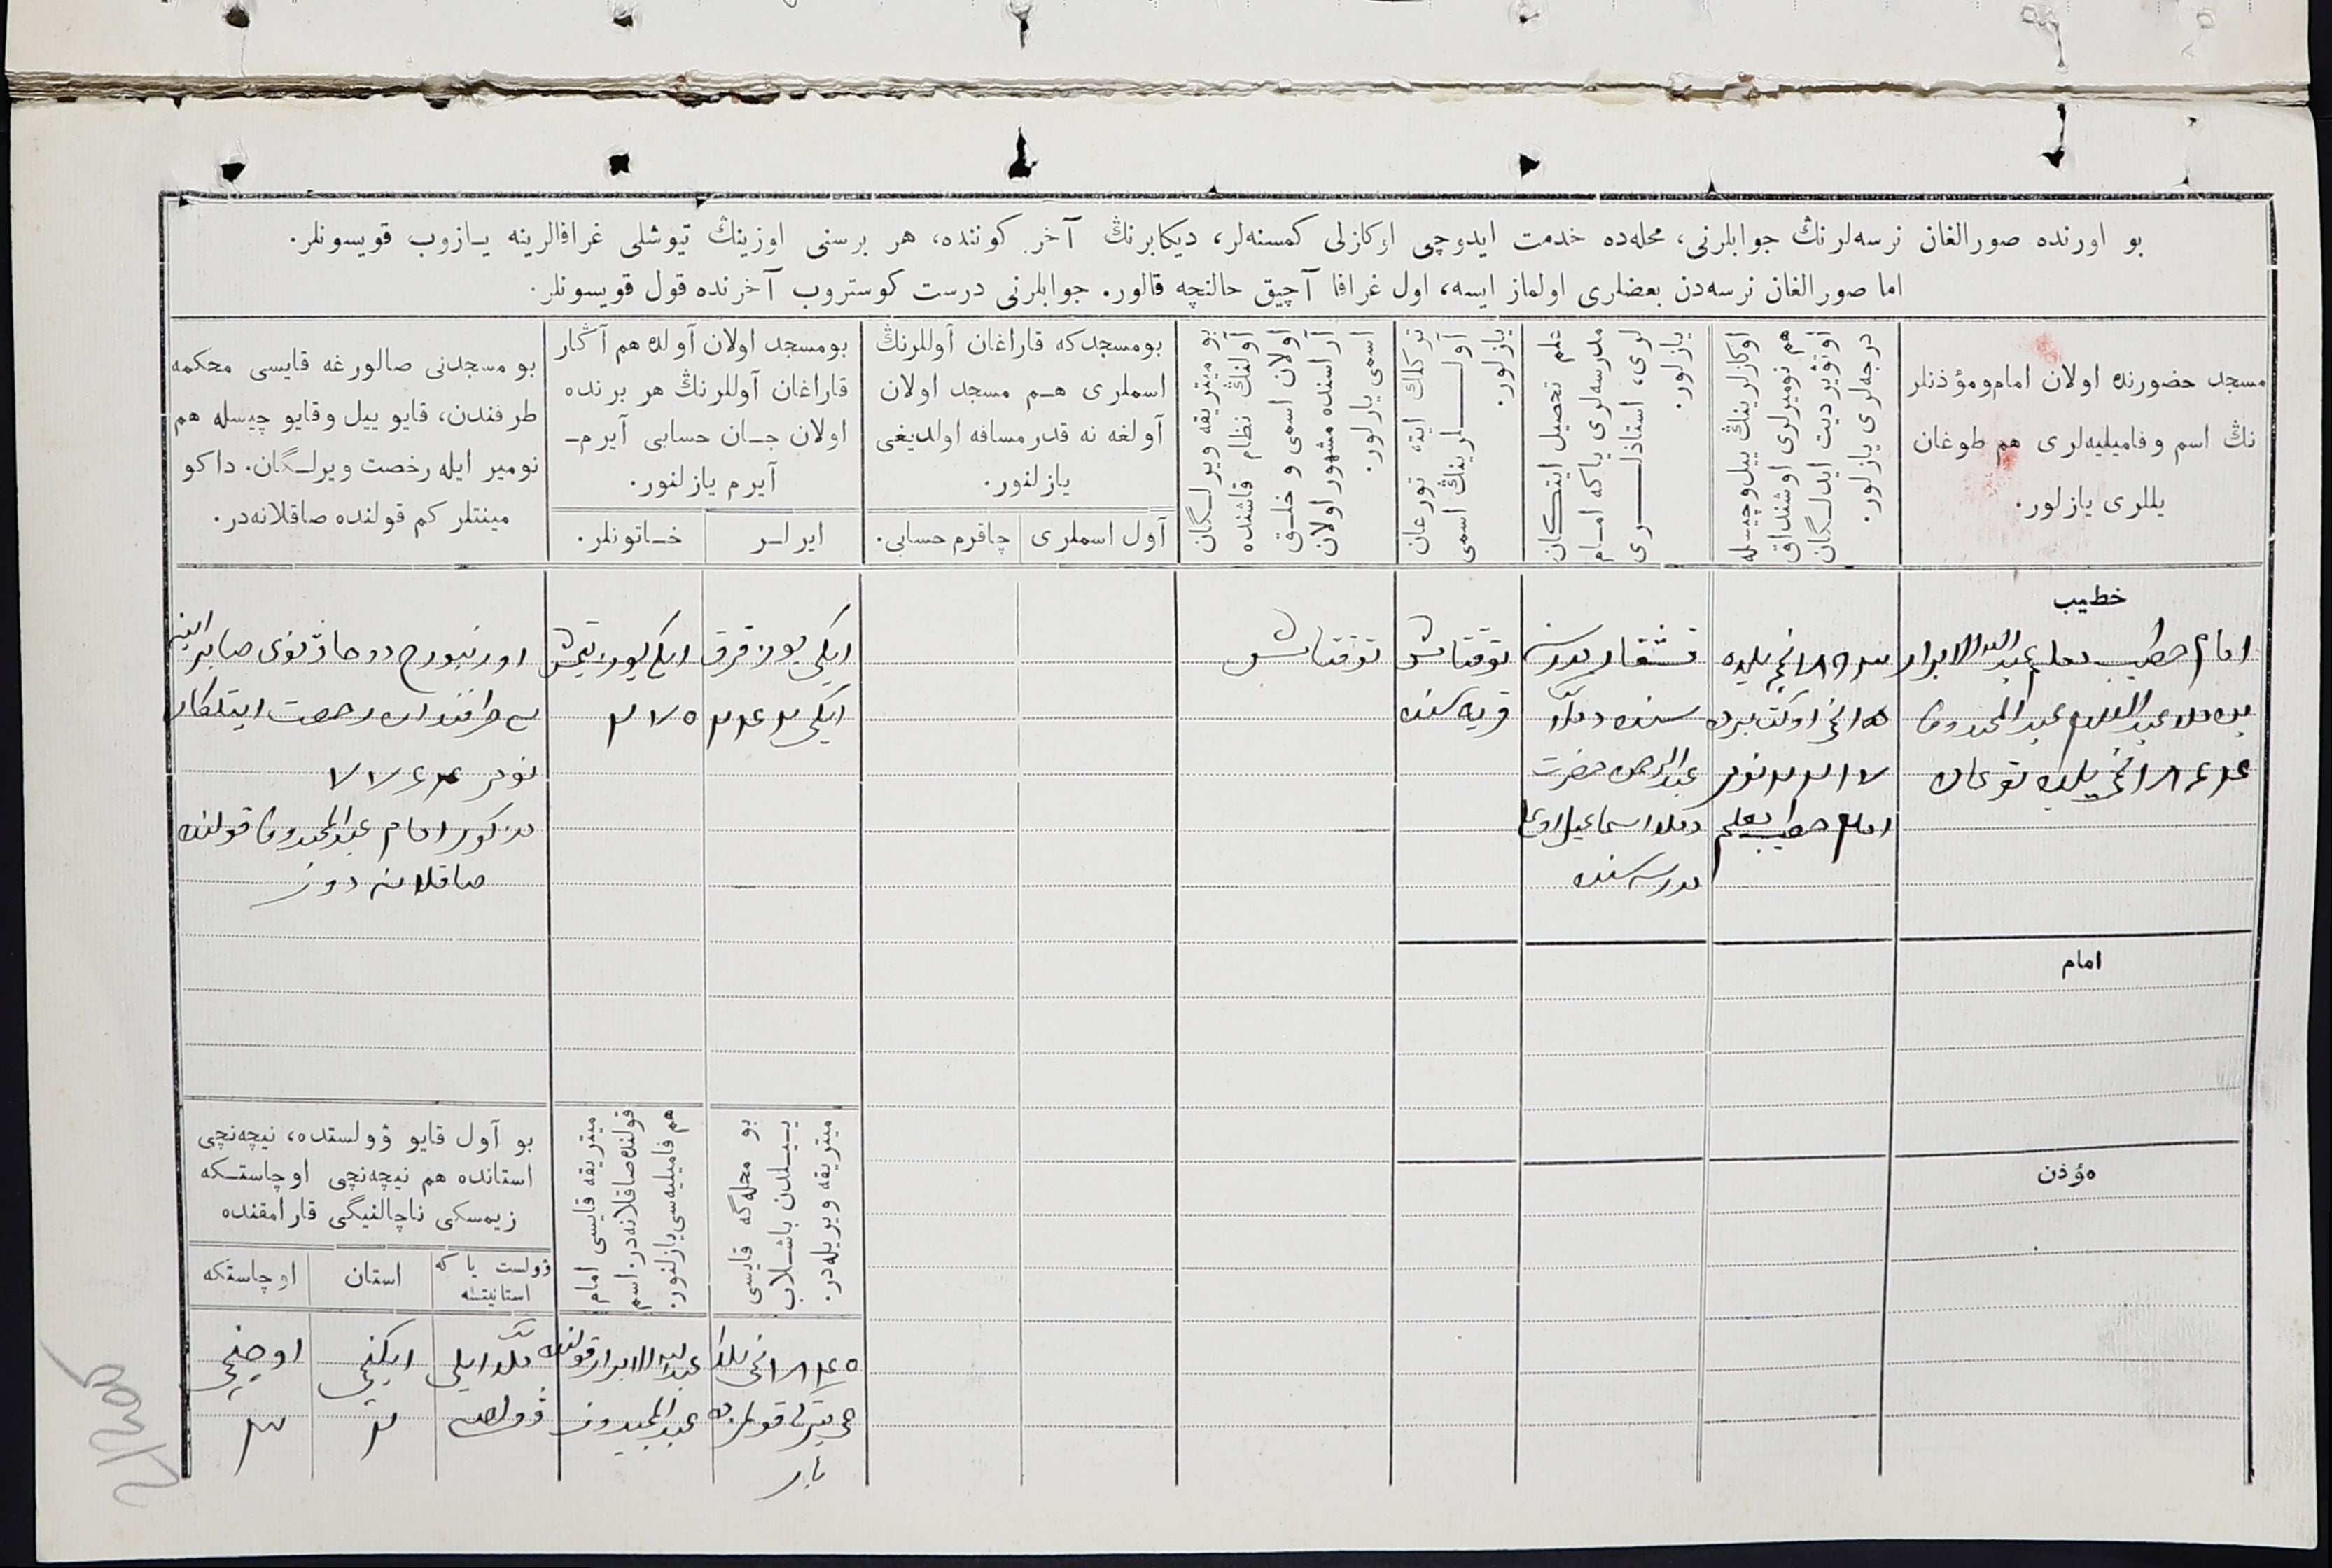 بو اورنده صورالغان نرسه‌لرنڭ جوابلرنی، محله‌ده خدمت ایدوچی اوکازلی کمسنه‌لر، دیکابرنڭ آخر کوننده، هر برسنی اوزینڭ تیوشلی غرافالرینه یـازوب قویسونلر.
اما صورالغان نرسه‌دن بعضلری اولماز ایسه، اول غرافا آچیق حالنچه قالور. جوابلرنی درست کوستروب آخرنده قول قویسونلر.
مسجد حضورنده اولان امام‌ومؤذنلر
نڭ اسم وفامیلیه‌لری هم طوغان
یللری یازلور.
اوکازلرینڭ ییل‌وچیسله
هم نومیرلری اوشنداق
اوتۋیردیت ایدلـگان
درجه‌لری یازلور.
علم تحصیل ایتـکان
مدرسه‌لری یاکه امـام
لری، استاذلــری
یازلور.
ترکلك ایته تورغان
آولــلرینڭ اسمی
یازلور.
بو میتریقه ویرلـگان
آولنڭ نظام قاشنده
اولان اسمی و خلـق
آراسنده مشهور اولان
اسمی یازلور.
بومسجدکه قاراغان آوللرنڭ
اسملری هـم مسجد اولان
آولغه نه قدر مسافه اولدیغی
یازلنور.
آول اسملری
چاقرم حسابی.
بومسجد اولان آولده هم آڭار
قاراغان آوللرنڭ هر برنده
اولان جـان حسابی آیرم-
آیرم یازلنور.
ایرلـر
خـاتونلر.
بو مسجدنی صالورغه قایسی محکمه
طرفندن، قایو ییل وقایو چیسله هم
نومیر ایله رخصت ویرلـگان. داکو
مینتلر کم قولنده صاقلانه‌در.
خطیب
امام خطیب معلم عبدالله الابرار
عبدالمجیدوف
۱۸۶۴ نچی یلده توغان
۱۸۹۳ نچی یلده
۱۵ نچی اوکتبرده
۲۲۱۷ نومر
امام خطیب معلم
سنده دملا
عبدالرحمن حضرت
دملا اسماعیل
مدرسه سنده
توقتاش
قریه سنده
توقتاش
ایکی یوز قرق
ایکی ۲۴۲
ایکی یوز یتمش
۲۷۵
اورنبورح دوحاۏنوی صابرانیه
سی طرافندان رحصت ایتلکان
نومر ۷۷۶۴
مذکور امام عبدالمجیدوف قولنده
صاقلانه دور
امام
مؤذن
بو محله‌گه قایسی
ییـلدن باشـلاب
میتریقه ویریله‌در.
میتریقه قایسی امام
قولنده صاقلانه‌در. اسم
هم فامیلیه‌سی یازلنور.
بو آول قایو ۋولستده، نیچه‌نچی
استانده هم نیچه‌نچی اوچاستـکه
زیمسکی ناچالنیگی قارامقنده
ۋولست یا که
استانیتسه
استان
اوچاستکه
۱۸۴۵ نچی یلدا
میتریک قولمزده
بار
عبدالله الابرار قولنده
عبدالمجیدوف
ایلی
ۋولصت
ایکنچی
۲
اوچنچی
۳